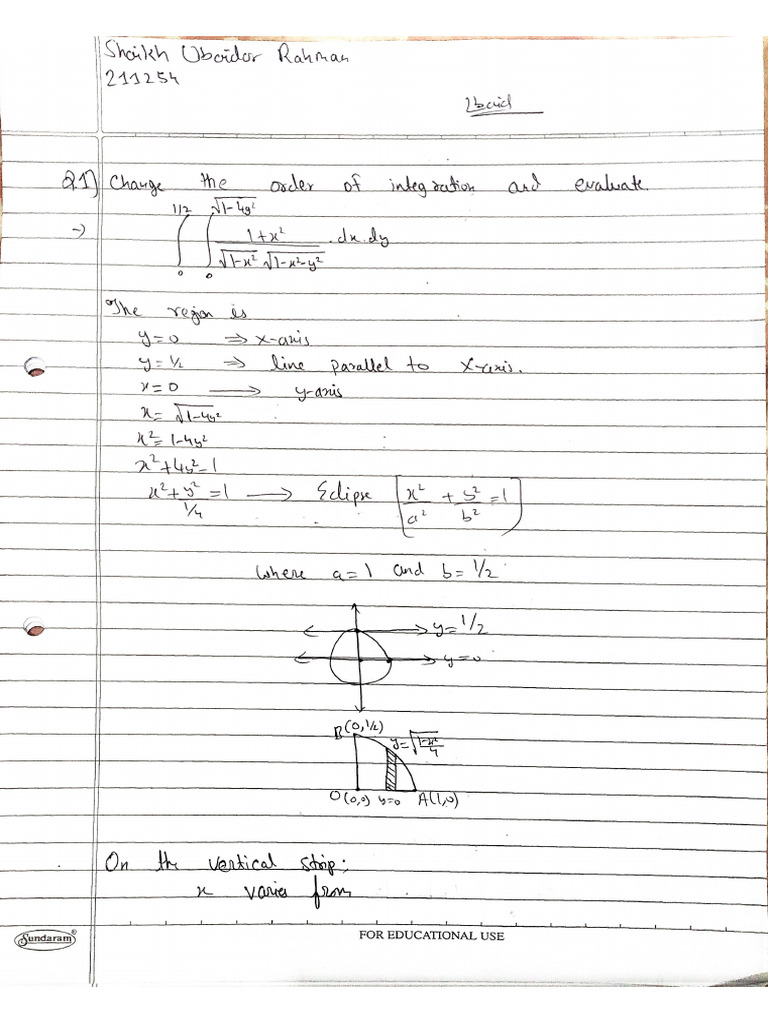 Shaikh Ubaidur Rahman
211254
Ubaid
Q.1) Change the order of integration and evaluate.
→ ∫₀^{1/2} ∫₀^{√1-4y²} (1+x²)/(√1-x² √1-x²-y²) . dx.dy
The region is
y=0 ⇒ x-axis
y=1/2 ⇒ line parallel to x-axis.
x=0 → y-axis
x=√1-4y²
x²=1-4y²
x²+4y²=1
x²+y²/1/4=1 → Eclipse [x²/a² + y²/b² =1]
where a=1 and b=1/2
y=1/2
y=0
B(0,1/2)
y=√1-x²/4
O(0,0) y=0 A(1,0)
On the vertical strip;
x varies from
Sundaram®
FOR EDUCATIONAL USE